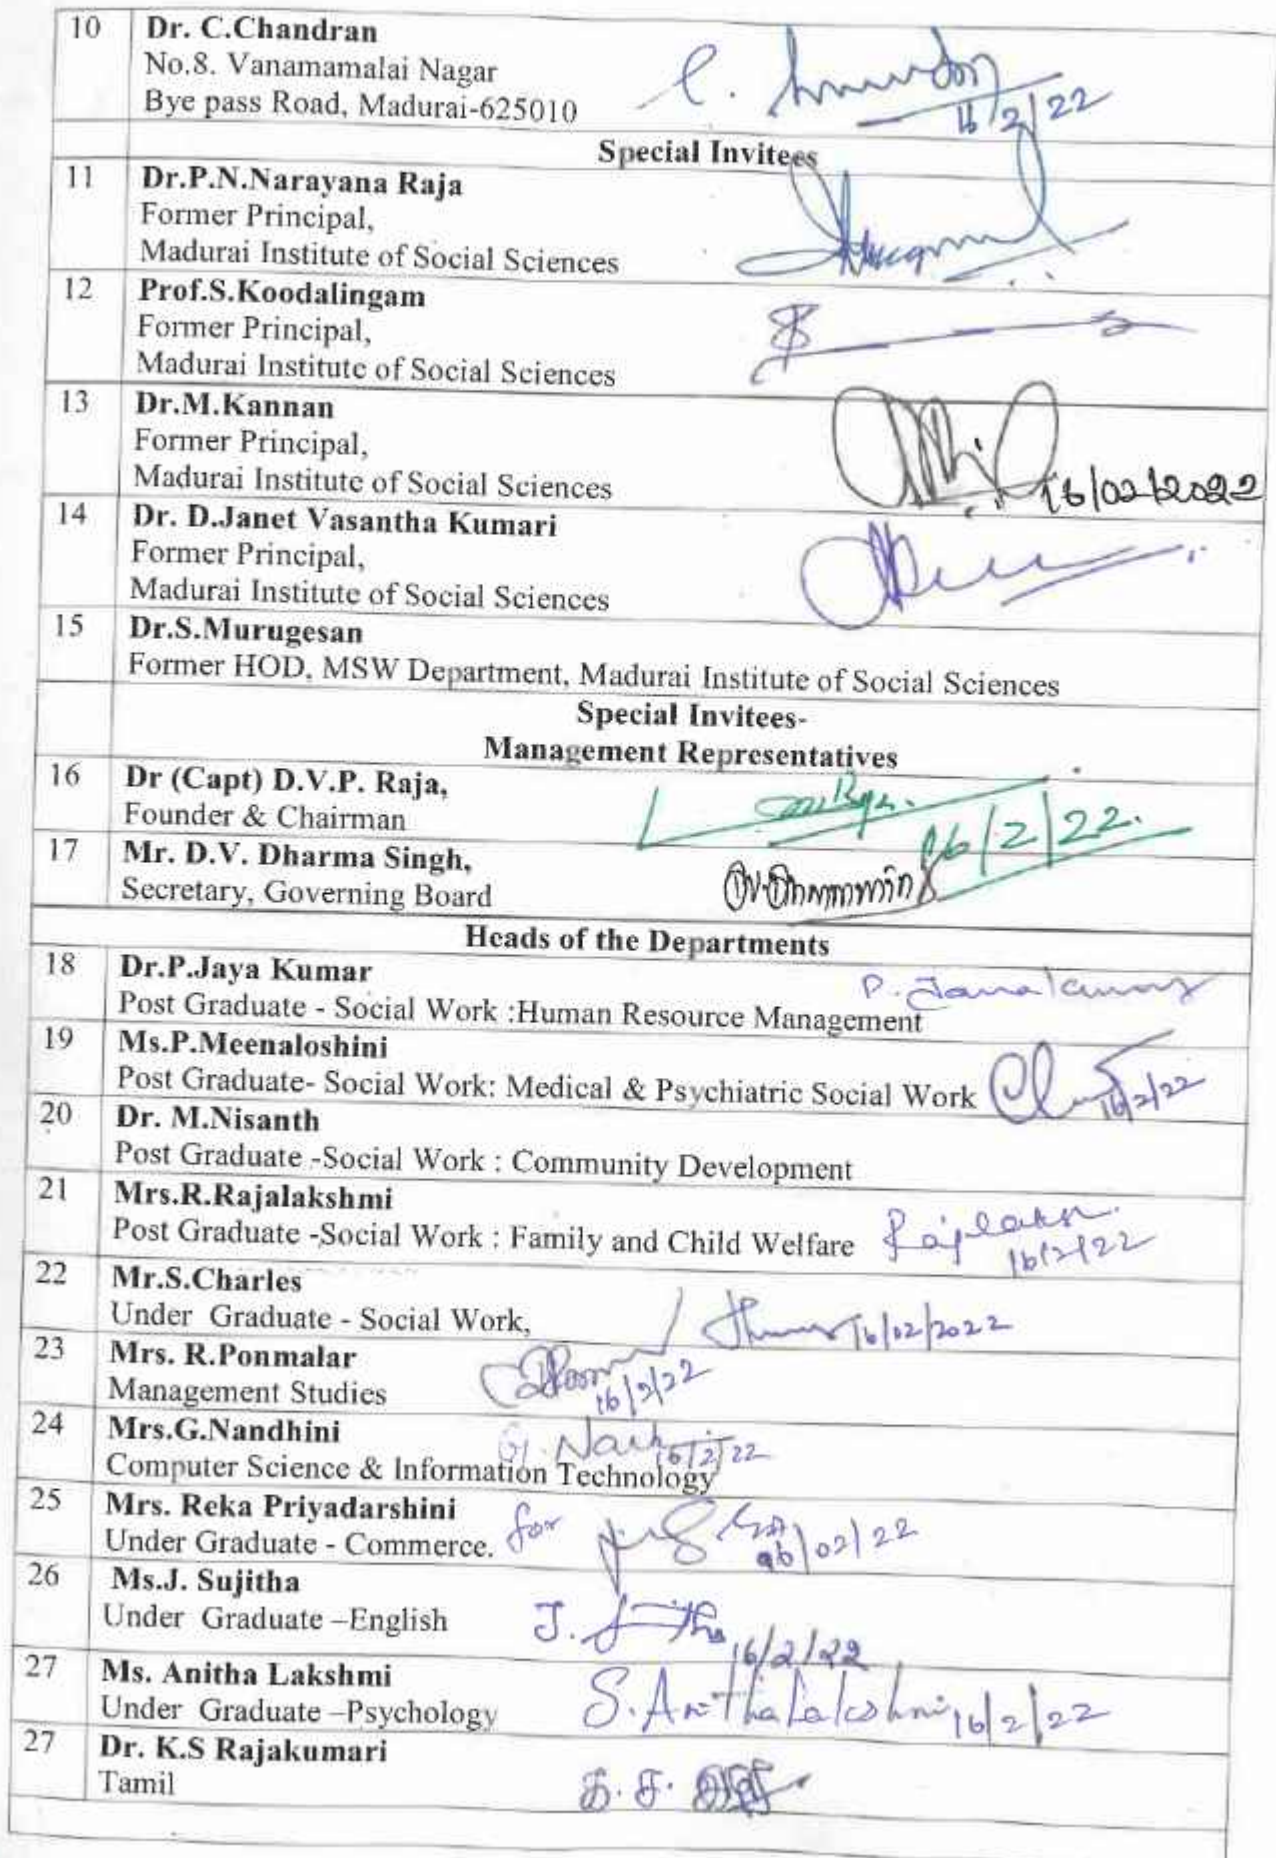 10 Dr. C.Chandran
No.8. Vanamamalai Nagar
Bye pass Road, Madurai-625010
16/2/22
Special Invitees
11 Dr.P.N.Narayana Raja
Former Principal,
Madurai Institute of Social Sciences
12 Prof.S.Koodalingam
Former Principal,
Madurai Institute of Social Sciences
13 Dr.M.Kannan
Former Principal,
Madurai Institute of Social Sciences
16/02/2022
14 Dr. D.Janet Vasantha Kumari
Former Principal,
Madurai Institute of Social Sciences
15 Dr.S.Murugesan
Former HOD, MSW Department, Madurai Institute of Social Sciences
Special Invitees-
Management Representatives
16 Dr (Capt) D.V.P. Raja,
Founder & Chairman
16/2/22.
17 Mr. D.V. Dharma Singh,
Secretary, Governing Board
Heads of the Departments
18 Dr.P.Jaya Kumar
Post Graduate - Social Work :Human Resource Management
19 Ms.P.Meenaloshini
Post Graduate- Social Work: Medical & Psychiatric Social Work
16/2/22
20 Dr. M.Nisanth
Post Graduate -Social Work : Community Development
21 Mrs.R.Rajalakshmi
Post Graduate -Social Work : Family and Child Welfare
16/2/22
22 Mr.S.Charles
Under Graduate - Social Work,
16/02/2022
23 Mrs. R.Ponmalar
Management Studies
16/2/22
24 Mrs.G.Nandhini
Computer Science & Information Technology
16/2/22
25 Mrs. Reka Priyadarshini
Under Graduate - Commerce. for
16/02/22
26 Ms.J. Sujitha
Under Graduate –English
16/2/22
27 Ms. Anitha Lakshmi
Under Graduate –Psychology S.AnithaLakshmi 16/2/22
27 Dr. K.S Rajakumari
Tamil